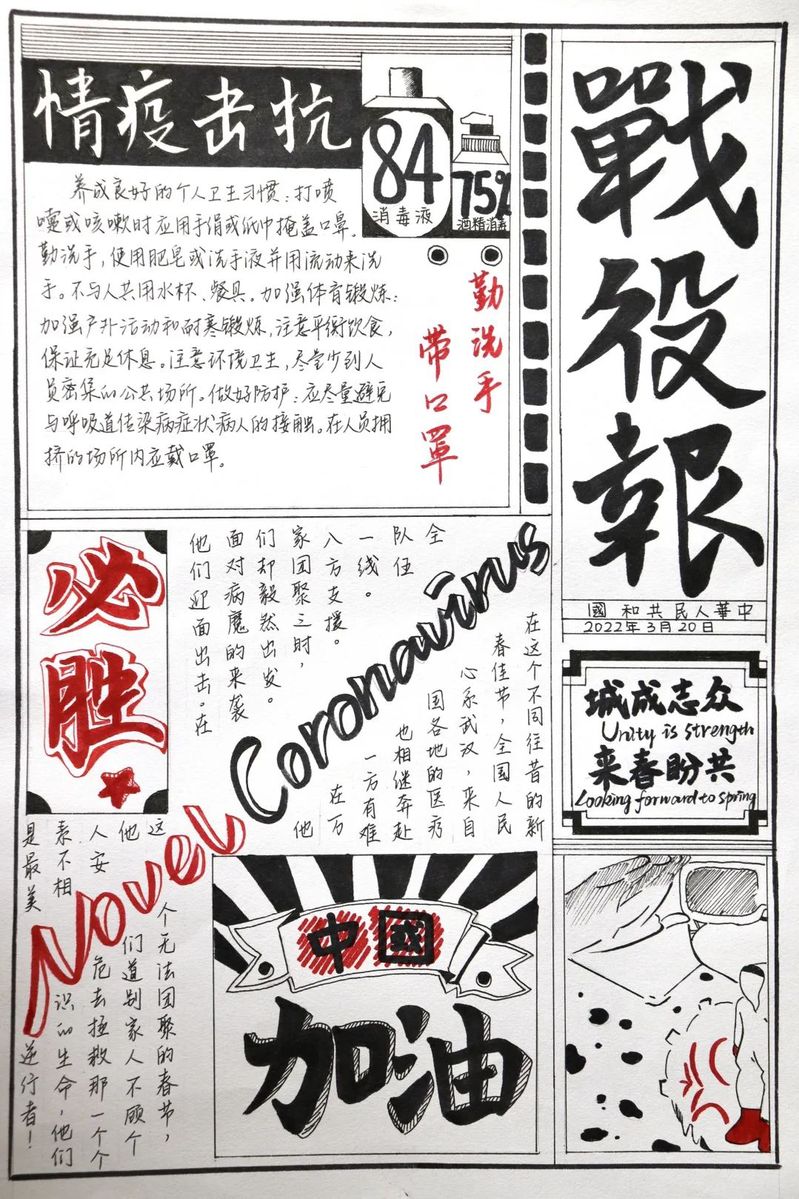 戰役報
中華人民共和國
2022年3月20日
抗击疫情
84
消毒液
75%
酒精消毒
养成良好的个人卫生习惯：打喷
嚏或咳嗽时应用手绢或纸巾掩盖口鼻。
勤洗手，使用肥皂或洗手液并用流动来洗
手。不与人共用水杯、餐具。加强体育锻炼：
加强户外活动和耐寒锻炼，注意平衡饮食，
保证充足休息。注意环境卫生，尽量少到人
员密集的公共场所。做好防护：应尽量避免
与呼吸道传染病症状病人的接触。在人员拥
挤的场所内应戴口罩。
勤洗手
带口罩
众志成城
Unity is strength
共盼春来
Looking forward to spring
必胜
Novel Coronavirus
在这个不同往昔的新
春佳节，全国人民
心系武汉，来自
全国各地的医疗
队伍也相继奔赴
一线。一方有难
八方支援。在万
家团聚之时，他
们却毅然出发。
面对病魔的来袭
他们迎面出击。在
这个无法团聚的春节，
他们道别家人不顾个
人安危去拯救那一个个
素不相识的生命，他们
是最美逆行者！
中國
加油